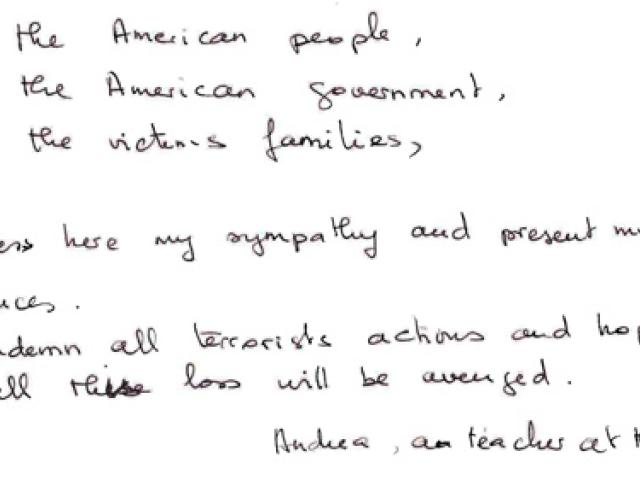 the American people,
the American government,
the victims families,
ess here my sympathy and present m
nces.
ndemn all terrorists actions and hop
ll loss will be avenged.
Andrea, a teacher at